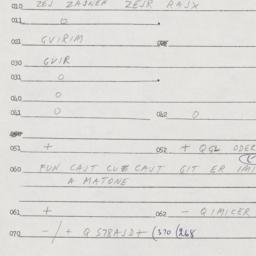 010 ZEJ ZASNEK ZESR RASX
011 0
021 GVIRIM
030 GVIR
031 0
040 0
061 0 062 0
051 + 052 + QGL ODER
060 FUN CAST CUE CAST GIT ER IMI
A MATONE
061 + 062 - QIMICER
070 -/+ Q578ASD+ (370 (268